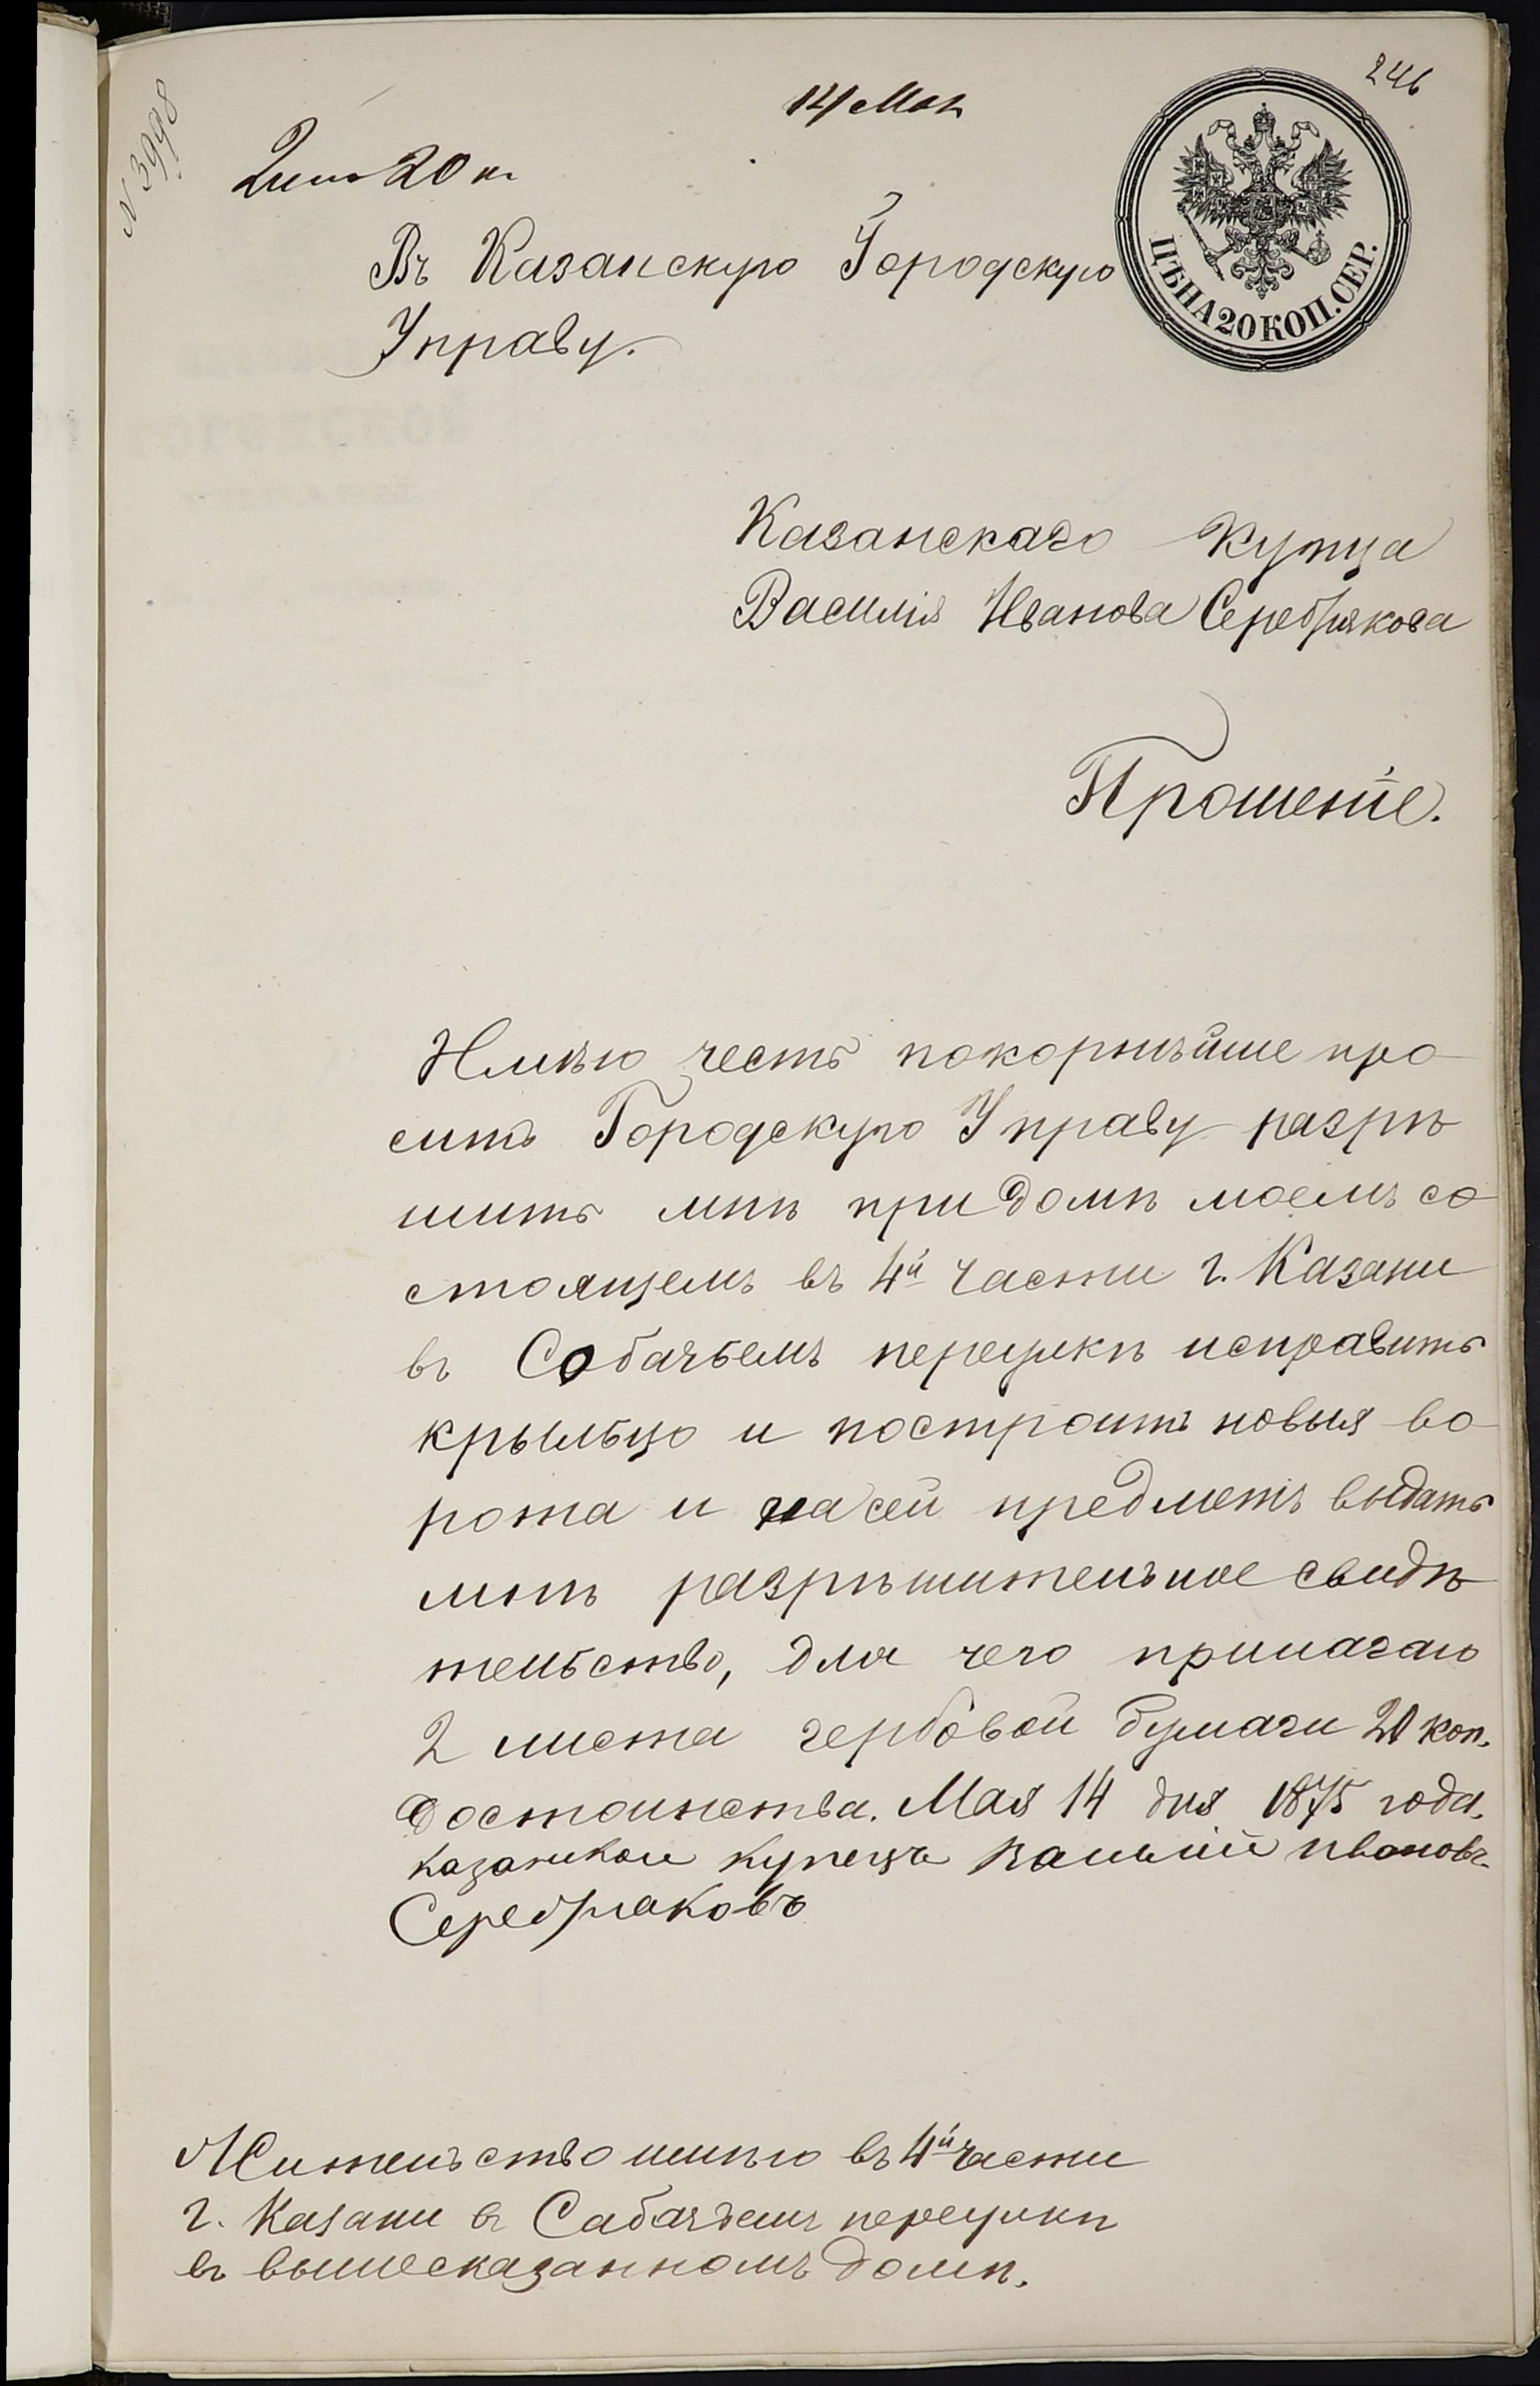 246
14 Мая
N 3998
2 листа 20 к.
Въ Казанскую Городскую
Управу.
ЦѢНА 20 КОП. СЕР.
Казанскаго Купца
Василія Иванова Серебрякова
Прошеніе.
Имѣю честь покорнѣйше про-
сить Городскую Управу разрѣ
шить мнѣ при домѣ моемъ со-
стоящемъ въ 4й части г. Казани
въ Собачьемъ переулкѣ исправить
крыльцо и построить новыя во-
рота и на сей предметъ выдать
мнѣ разрѣшительное свидѣ
тельство, для чего прилагаю
2 листа гербовой бумаги 20 коп.
достоинства. Мая 14 дня 1875 года.
Казанской купецъ Василий Ивановъ
Серебряковъ
Жительство имѣю въ 4й части
г. Казани въ Сабачьемъ переулкѣ
въ вышесказанномъ домѣ.